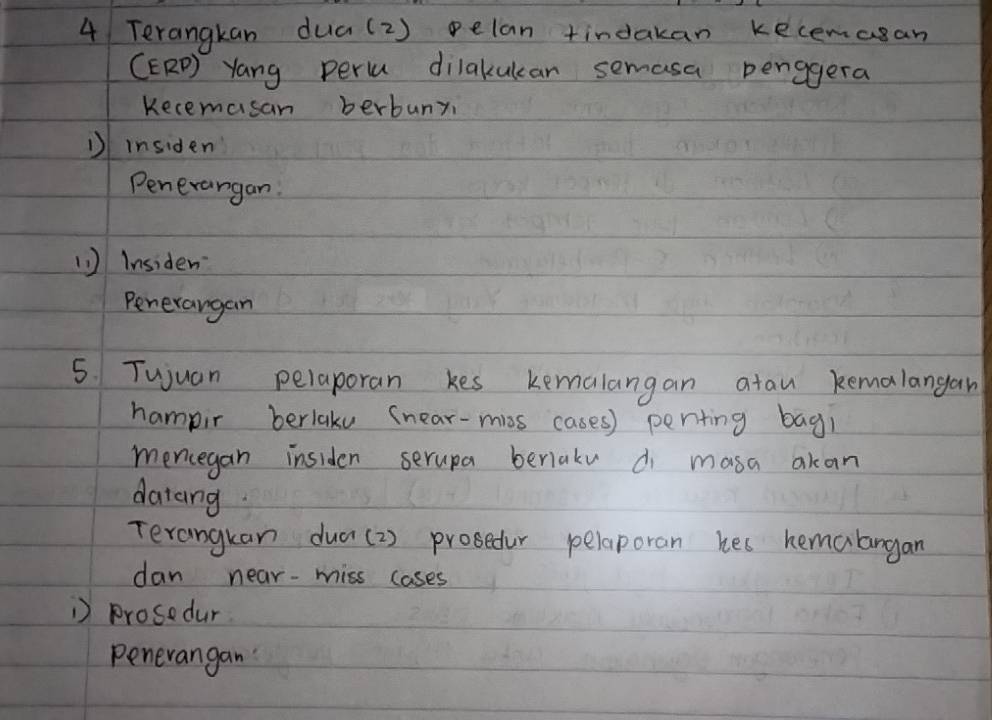 4 Terangkan dua (2) pelan tindakan kecemasan
(ERP) Yang perlu dilakukan semasa penggera
Kecemasan berbunyi
i) Insiden:
Penerangan:
ii) Insiden:
Penerangan
5. Tujuan pelaporan kes kemalangan atau kemalangan
hampir berlaku (near-miss cases) penting bagi
mencegan insiden serupa berlaku di masa akan
datang.
Terangkan dua (2) prosedur pelaporan kes kemalangan
dan near-miss cases
i) Prosedur:
Penerangan: